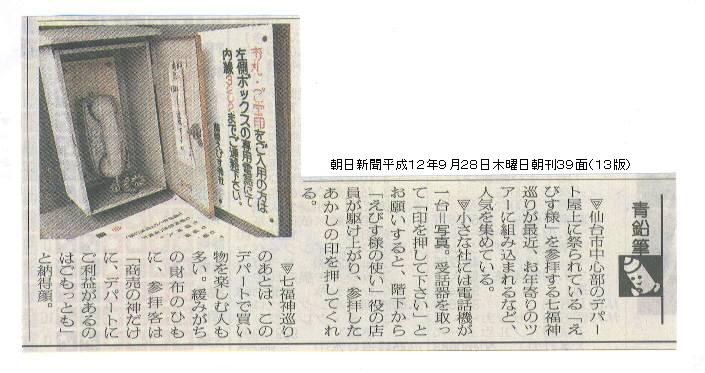 朝日新聞平成12年9月28日木曜日朝刊39面(13版)
青鉛筆
▽仙台市中心部のデパー
ト屋上に祭られている「え
びす様」を参拝する七福神
巡りが最近、お年寄りのツ
アーに組み込まれるなど、
人気を集めている。
▽小さな社には電話機が
一台=写真。受話器を取っ
て「印を押して下さい」と
お願いすると、階下から
「えびす様の使い」役の店
員が駆け上がり、参拝した
あかしの印を押してくれ
る。
▽七福神巡り
のあとは、この
デパートで買い
物を楽しむ人も
多い。緩みがち
の財布のひも
に、参拝客は
「商売の神だけ
に、デパートに
ご利益があるの
はごもっとも」
と納得顔。
お札・ご宝印をご入用の方は
左側ボックスの専用電話にて
内線 までご連絡下さい。
えびす神社